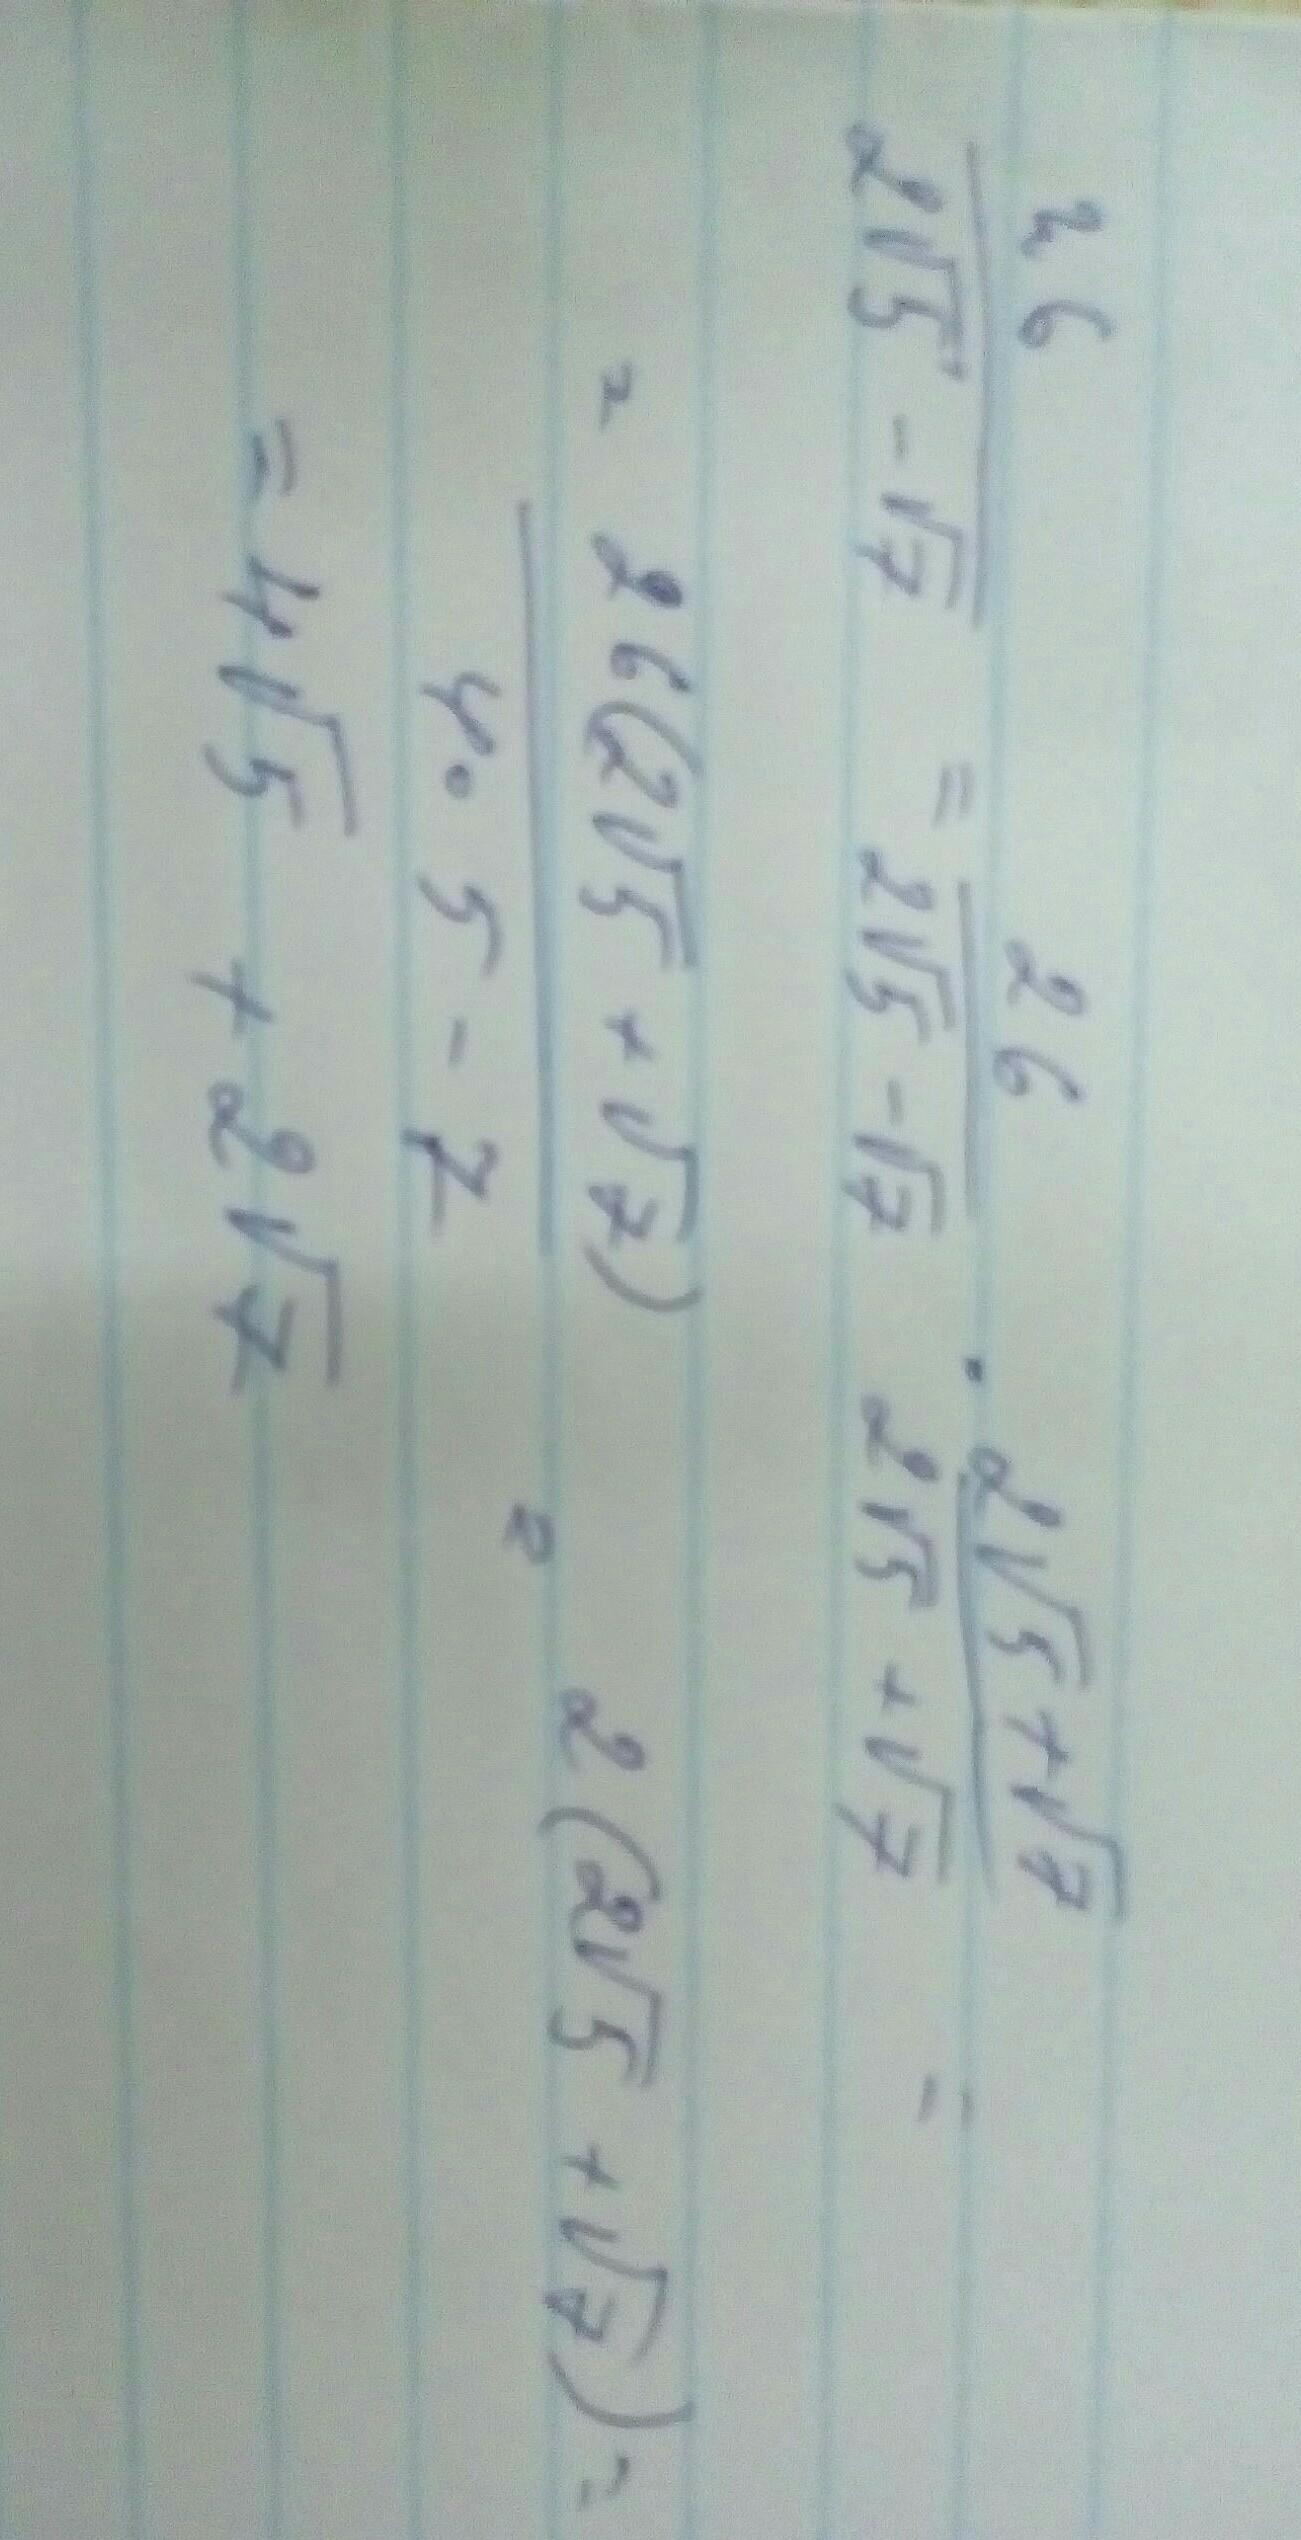 26/(2√5 - √7) = 26/(2√5 - √7) · (2√5 + √7)/(2√5 + √7) =
= 26(2√5 + √7)/(4·5 - 7) = 2(2√5 + √7) =
= 4√5 + 2√7